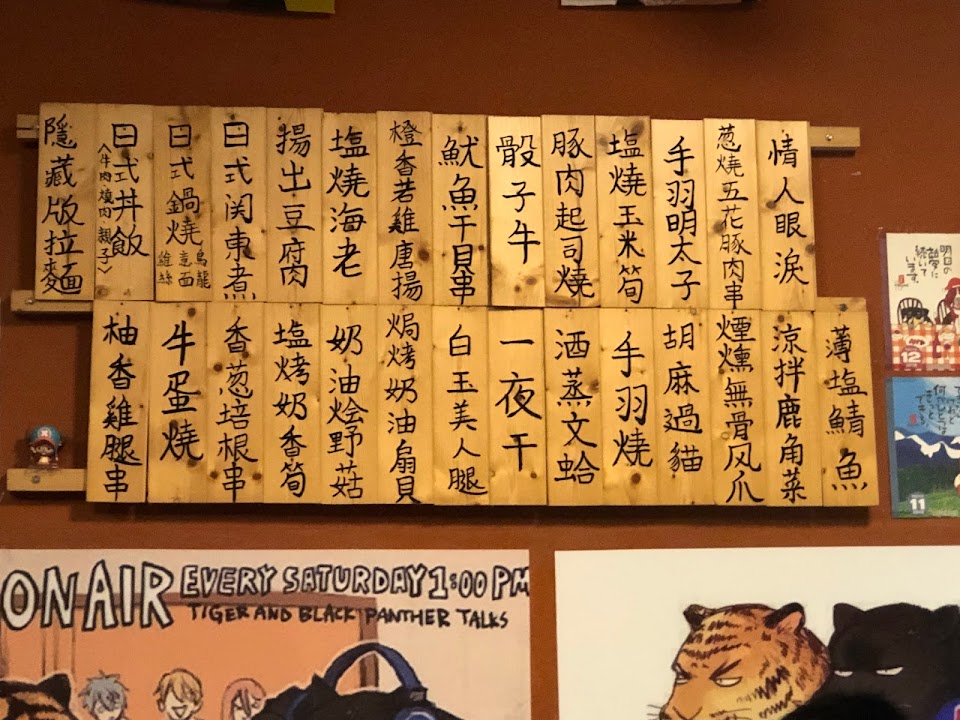 情人眼淚
葱燒五花豚肉串
手羽明太子
塩燒玉米筍
豚肉起司燒
骰子牛
魷魚干貝串
橙香若雞唐揚
塩燒海老
揚出豆腐肉
日式関東煮
日式鍋燒
烏龍
意面
雞絲
日式丼飯
<牛肉 燒肉 親子>
隱藏版拉麵
薄塩鯖魚
涼拌鹿角菜
煙燻無骨风爪
胡麻過貓
手羽燒
酒蒸文蛤
一夜干
白玉美人腿
焗烤奶油扇貝
奶油烩野菇
塩烤奶香筍
香葱培根串
牛蛋燒
柚香雞腿串
明日の
続いて
います。
12
11
ON AIR EVERY SATURDAY 1:00 PM
TIGER AND BLACK PANTHER TALKS